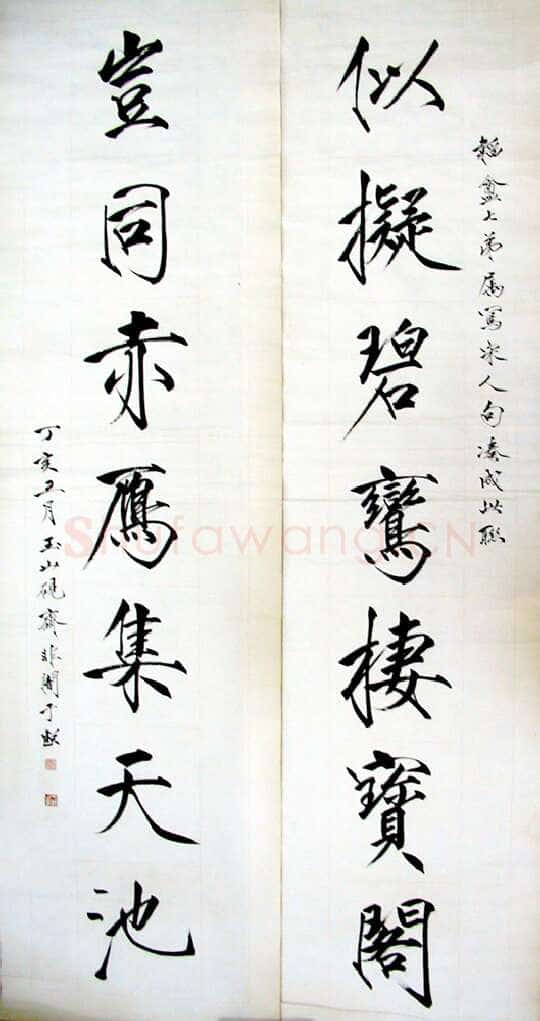 似擬碧鸞棲寶閣
盦弟属寫宋人句湊成此聯
豈同赤鴈集天池
丁亥五月玉山硯齋非闇于照
Shufawang.CN